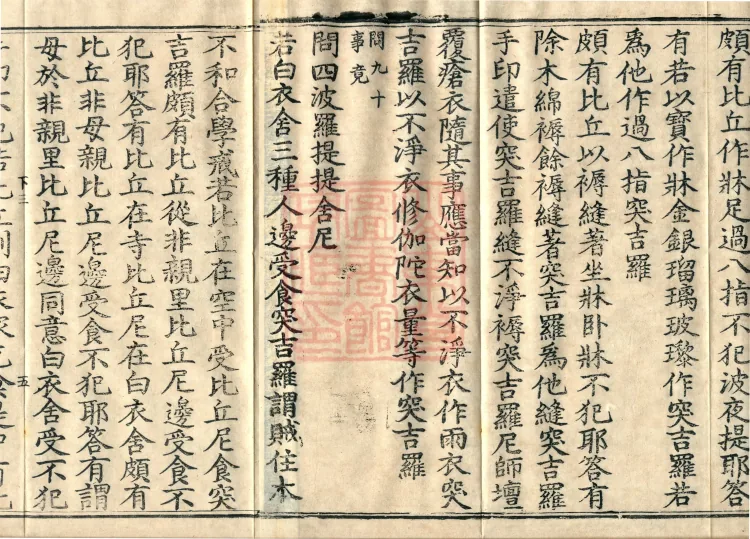 頗有比丘作牀足過八指不犯波夜提耶答
有若以寶作牀金銀瑠璃玻瓈作突吉羅若
為他作過八指突吉羅
頗有比丘以褥縫著坐牀卧牀不犯耶答有
除木綿褥餘褥縫著突吉羅為他縫突吉羅
手印遣使突吉羅縫不淨褥突吉羅尼師壇
覆瘡衣隨其事應當知以不淨衣作雨衣突
吉羅以不淨衣修伽陀衣量等作突吉羅
問九十
事竟
問四波羅提提舍尼
若白衣舍三種人邊受食突吉羅謂賊住本
不和合學戒若比丘在空中受比丘尼食突
言羅頗有比丘從非親里比丘尼邊受食不
犯耶答有比丘在寺比丘尼在白衣舍頗有
比丘非母親比丘尼邊受食不犯耶答有謂
母於非親里比丘尼邊同意白衣舍受不犯
下三
五